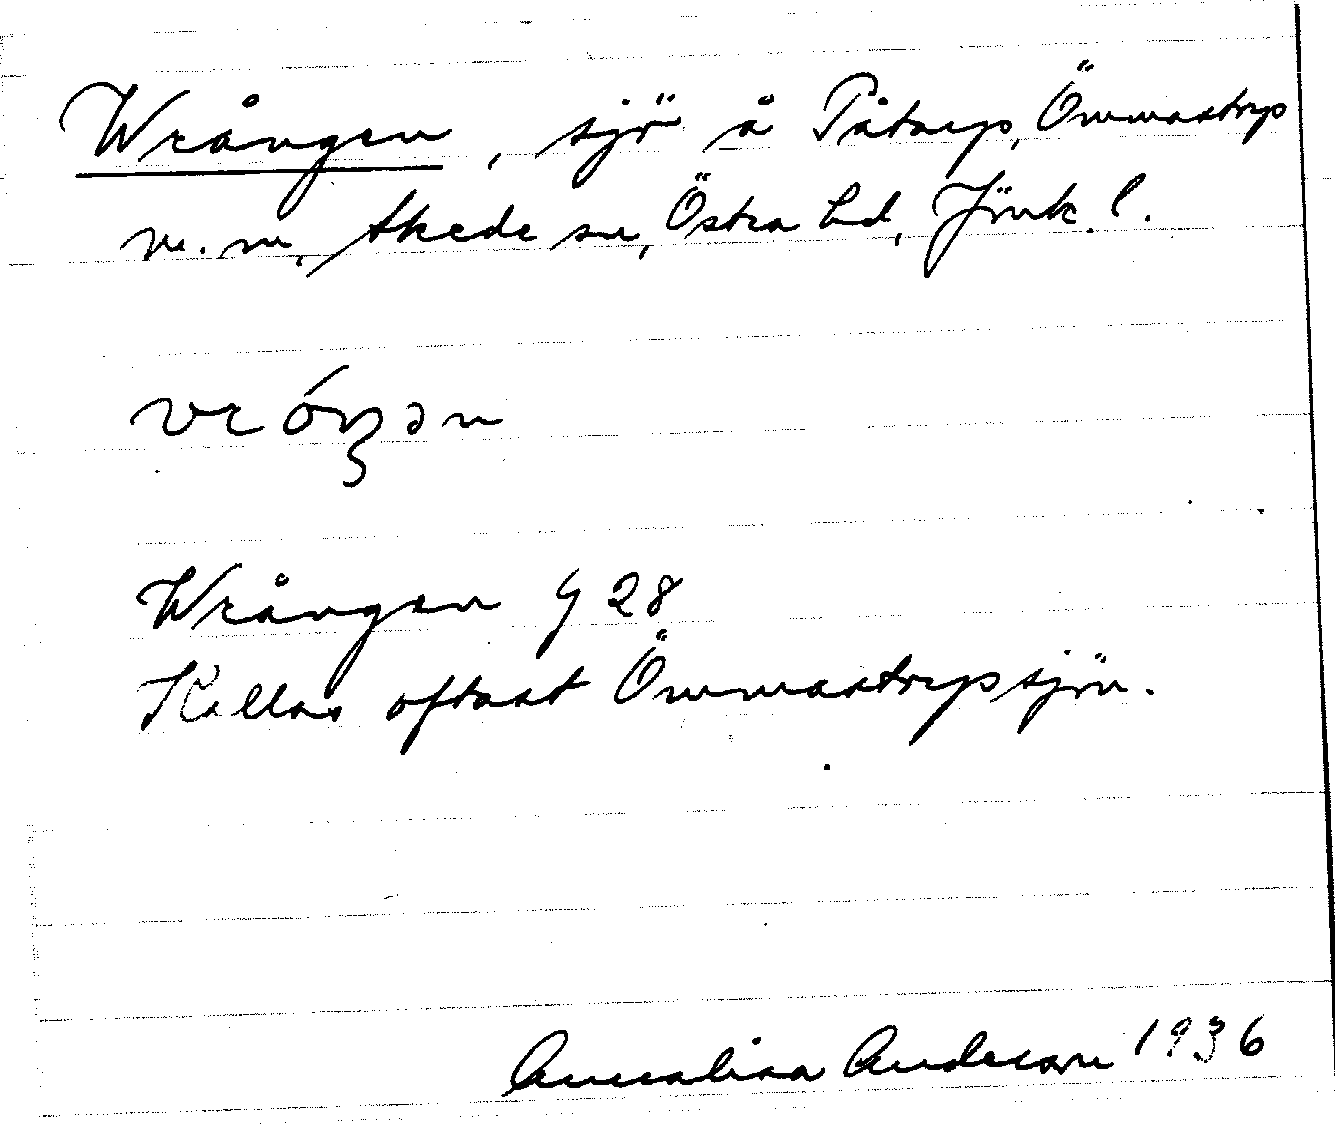 Wrången, sjö å Påtorp, Ömmastryp
m.m., Skede sn, Östra hd, Jönk. l.
vróŋən
Wrången G 28
Kallas oftast Ömmastrypsjön.
Annalisa Anderson 1936